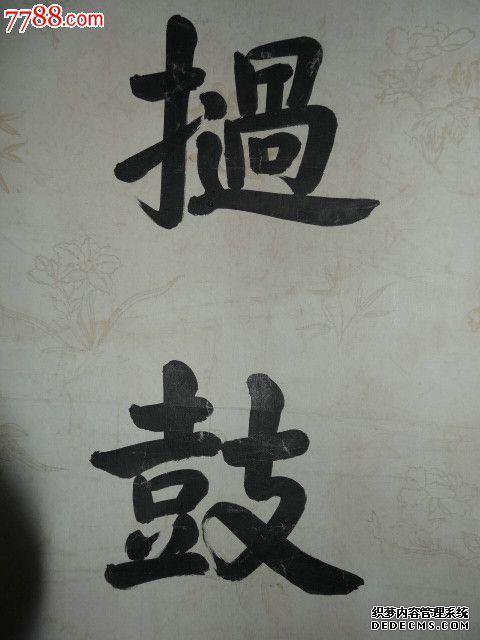 7788.com
撾
鼓
织梦内容管理系统
DEDECMS.COM